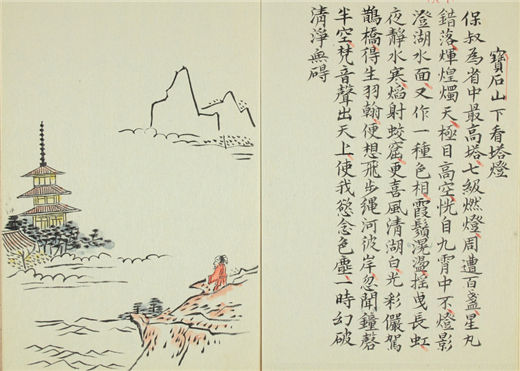 寶石山下看塔燈
保叔為省中最高塔七級燃燈周遭百盞星丸
錯落煇煌燭天極目高空恍自九霄中下燈影
澄湖水面又作一種色相霞鬚滉漾搖曳長虹
夜靜水寒焰射蛟窟更喜風清湖白光彩儼駕
鵲橋得生羽翰便想飛步繩河彼岸忽聞鐘磬
半空梵音聲出天上使我慾念色塵一時幻破
清淨無碍